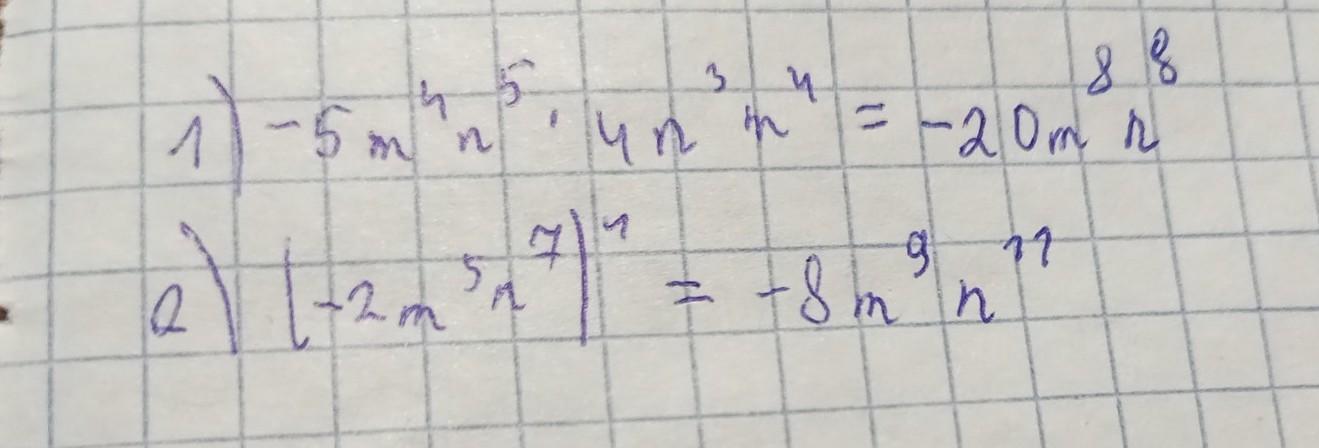 1) -5m⁴n⁵ · 4n³m⁴ = -20m⁸n⁸
2) (-2m⁵n⁷)⁴ = -8m⁹n¹¹